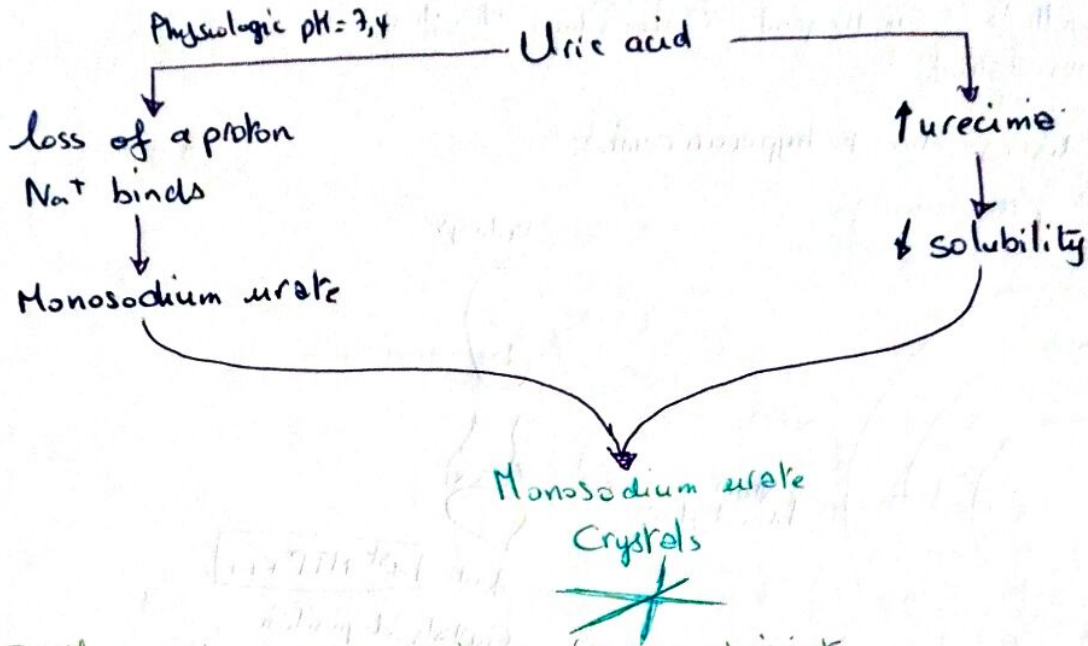 Physiologic pH = 7,4
Uric acid
loss of a proton
Na⁺ binds
↑ urecime
↓ solubility
Monosodium urate
Monosodium urate
Crystals